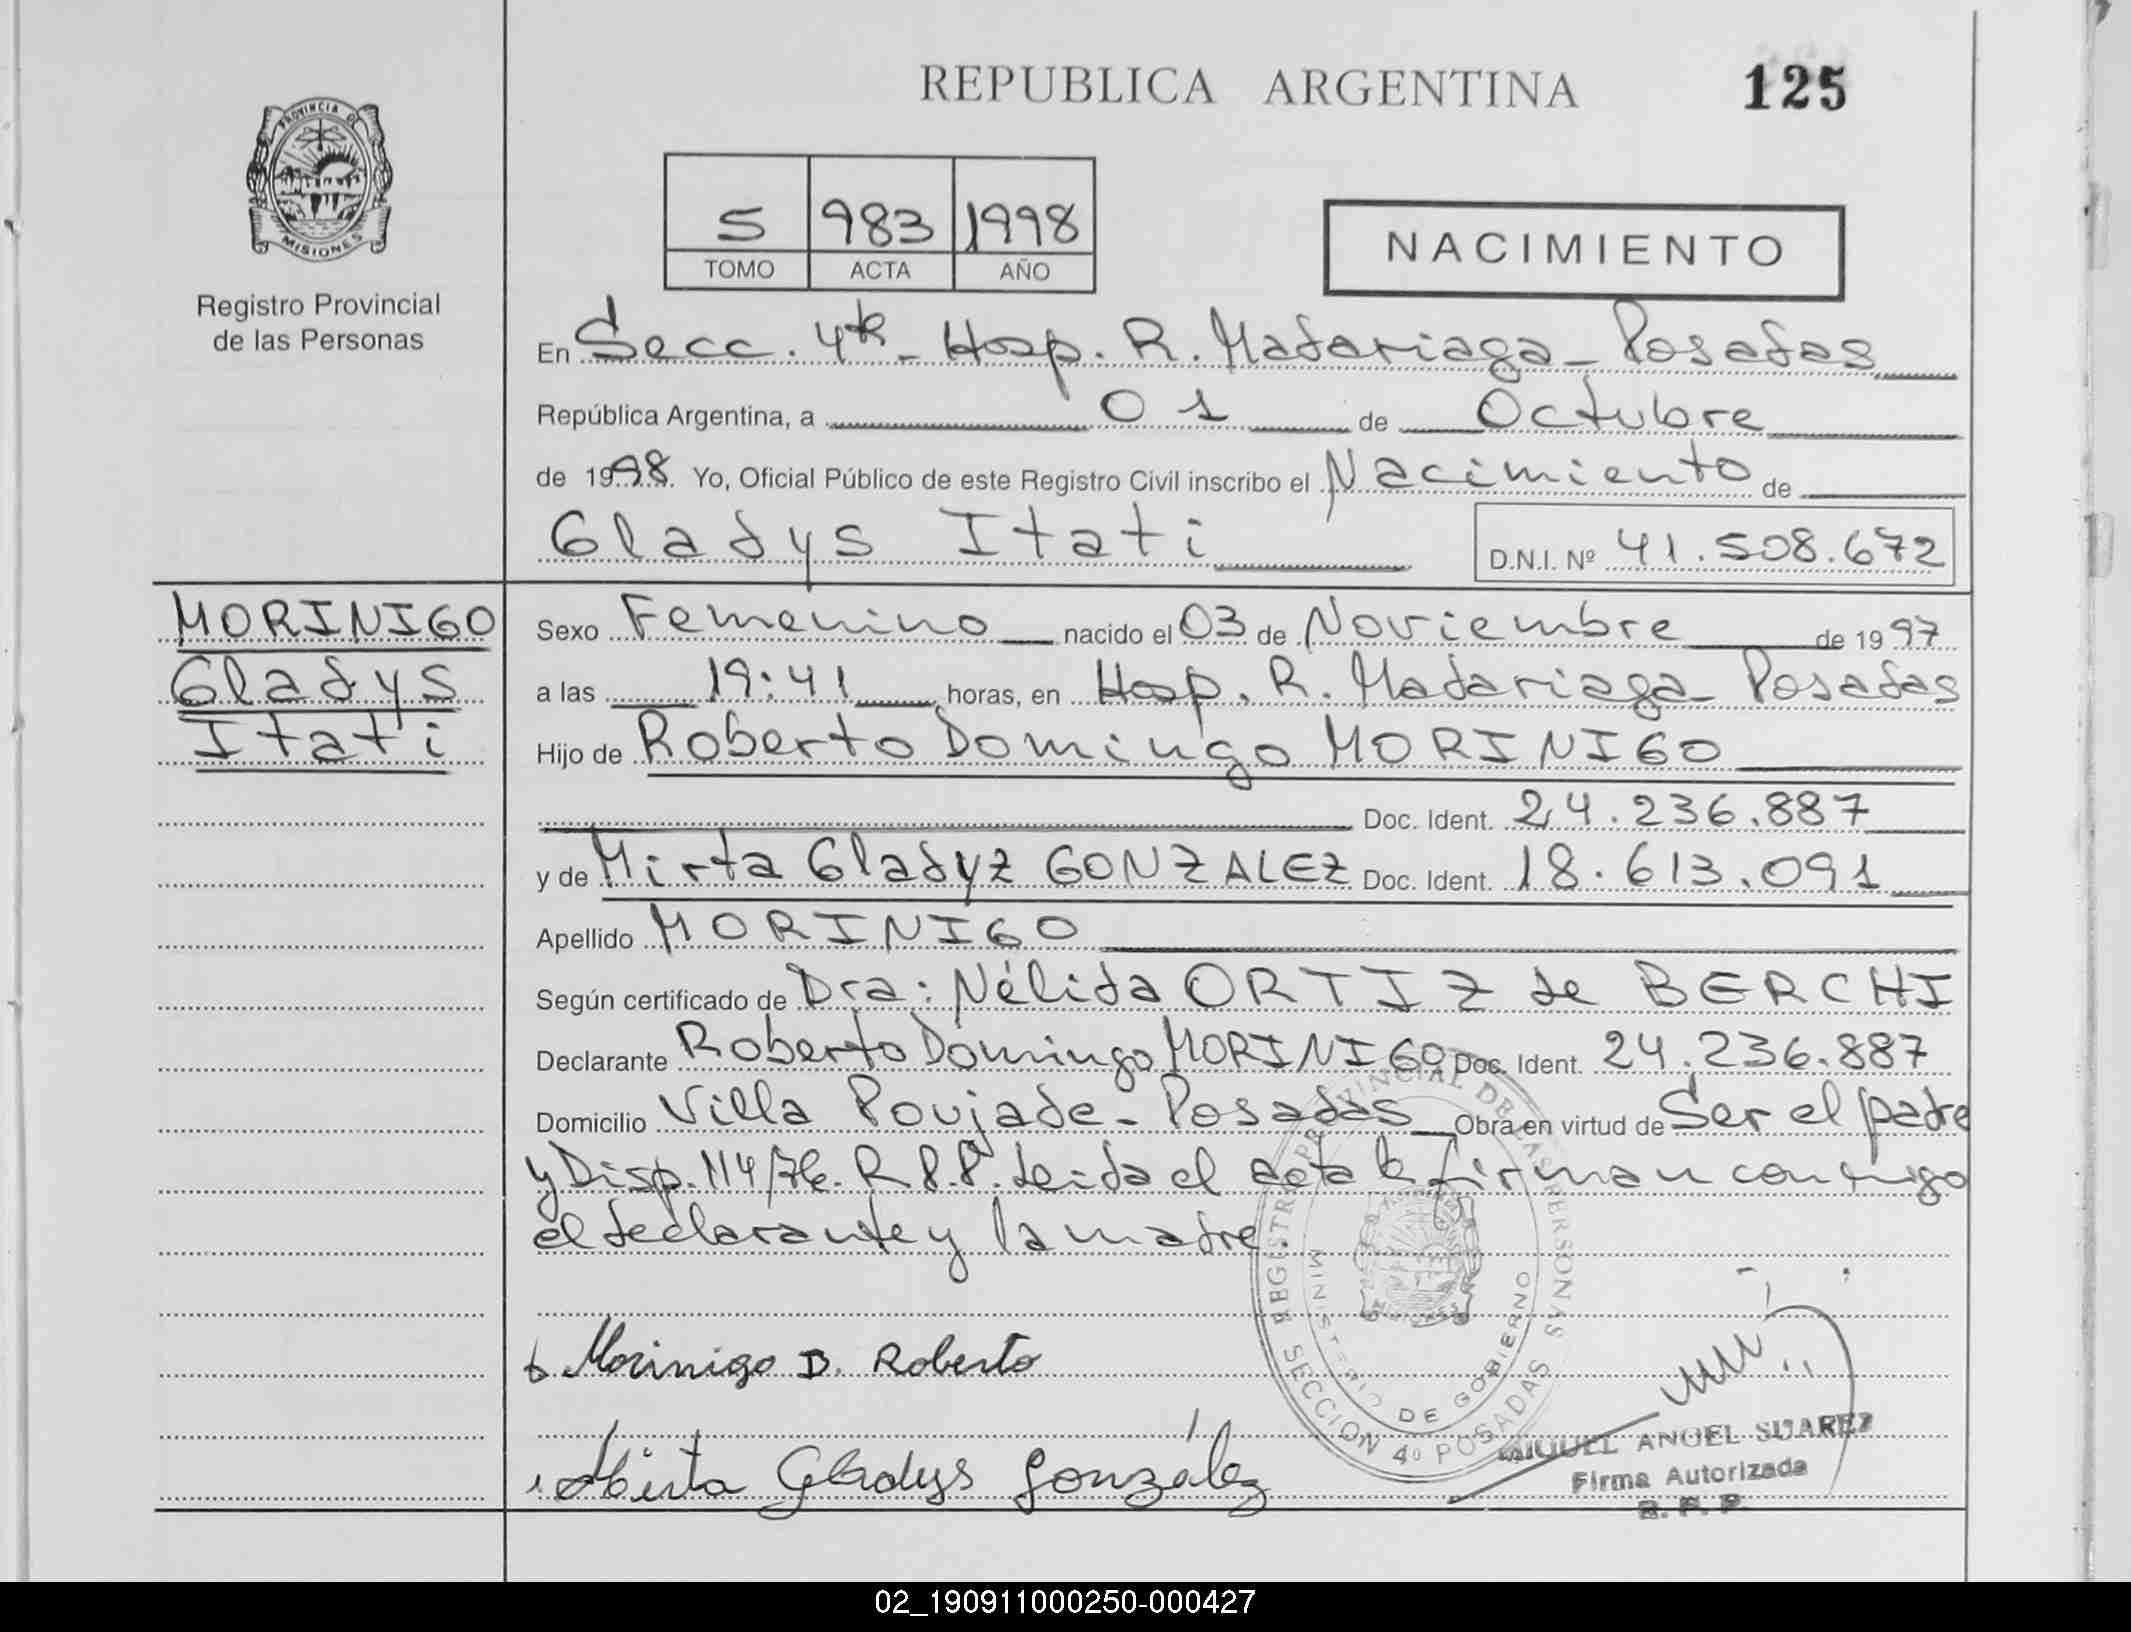 REPUBLICA ARGENTINA 125
PROVINCIA DE MISIONES
Registro Provincial
de las Personas
5 983 1998
TOMO ACTA AÑO
NACIMIENTO
En Secc. 4ta - Hosp. R. Madariaga - Posadas
República Argentina, a 01 de Octubre
de 1998. Yo, Oficial Público de este Registro Civil inscribo el Nacimiento de
Gladys Itati D.N.I. Nº 41.508.672
MORINIGO
Gladys
Itati
Sexo Femenino nacido el 03 de Noviembre de 1997
a las 19:41 horas, en Hosp. R. Madariaga - Posadas
Hijo de Roberto Domingo MORINIGO
Doc. Ident. 24.236.887
y de Mirta Gladyz GONZALEZ Doc. Ident. 18.613.091
Apellido MORINIGO
Según certificado de Dra: Nélida ORTIZ de BERCHI
Declarante Roberto Domingo MORINIGO Doc. Ident. 24.236.887
Domicilio Villa Poujade - Posadas Obra en virtud de Ser el padre
y Disp. 114/76. R.P.P. Leida el acta la firman conmigo
el declarante y la madre.
REGISTRO PROVINCIAL DE LAS PERSONAS
SECCION 4º POSADAS
MINISTERIO DE GOBIERNO
Morinigo D. Roberto
Mirta Gladys González
MIGUEL ANGEL SUAREZ
Firma Autorizada
R. P. P.
02_190911000250-000427